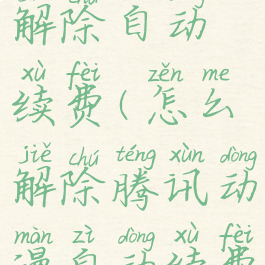 chú dòng
解除自动
xù fèi zěn me
续费(怎么
jiě chú téng xùn dòng
解除腾讯动
màn zì dòng xù fèi
漫自动续费